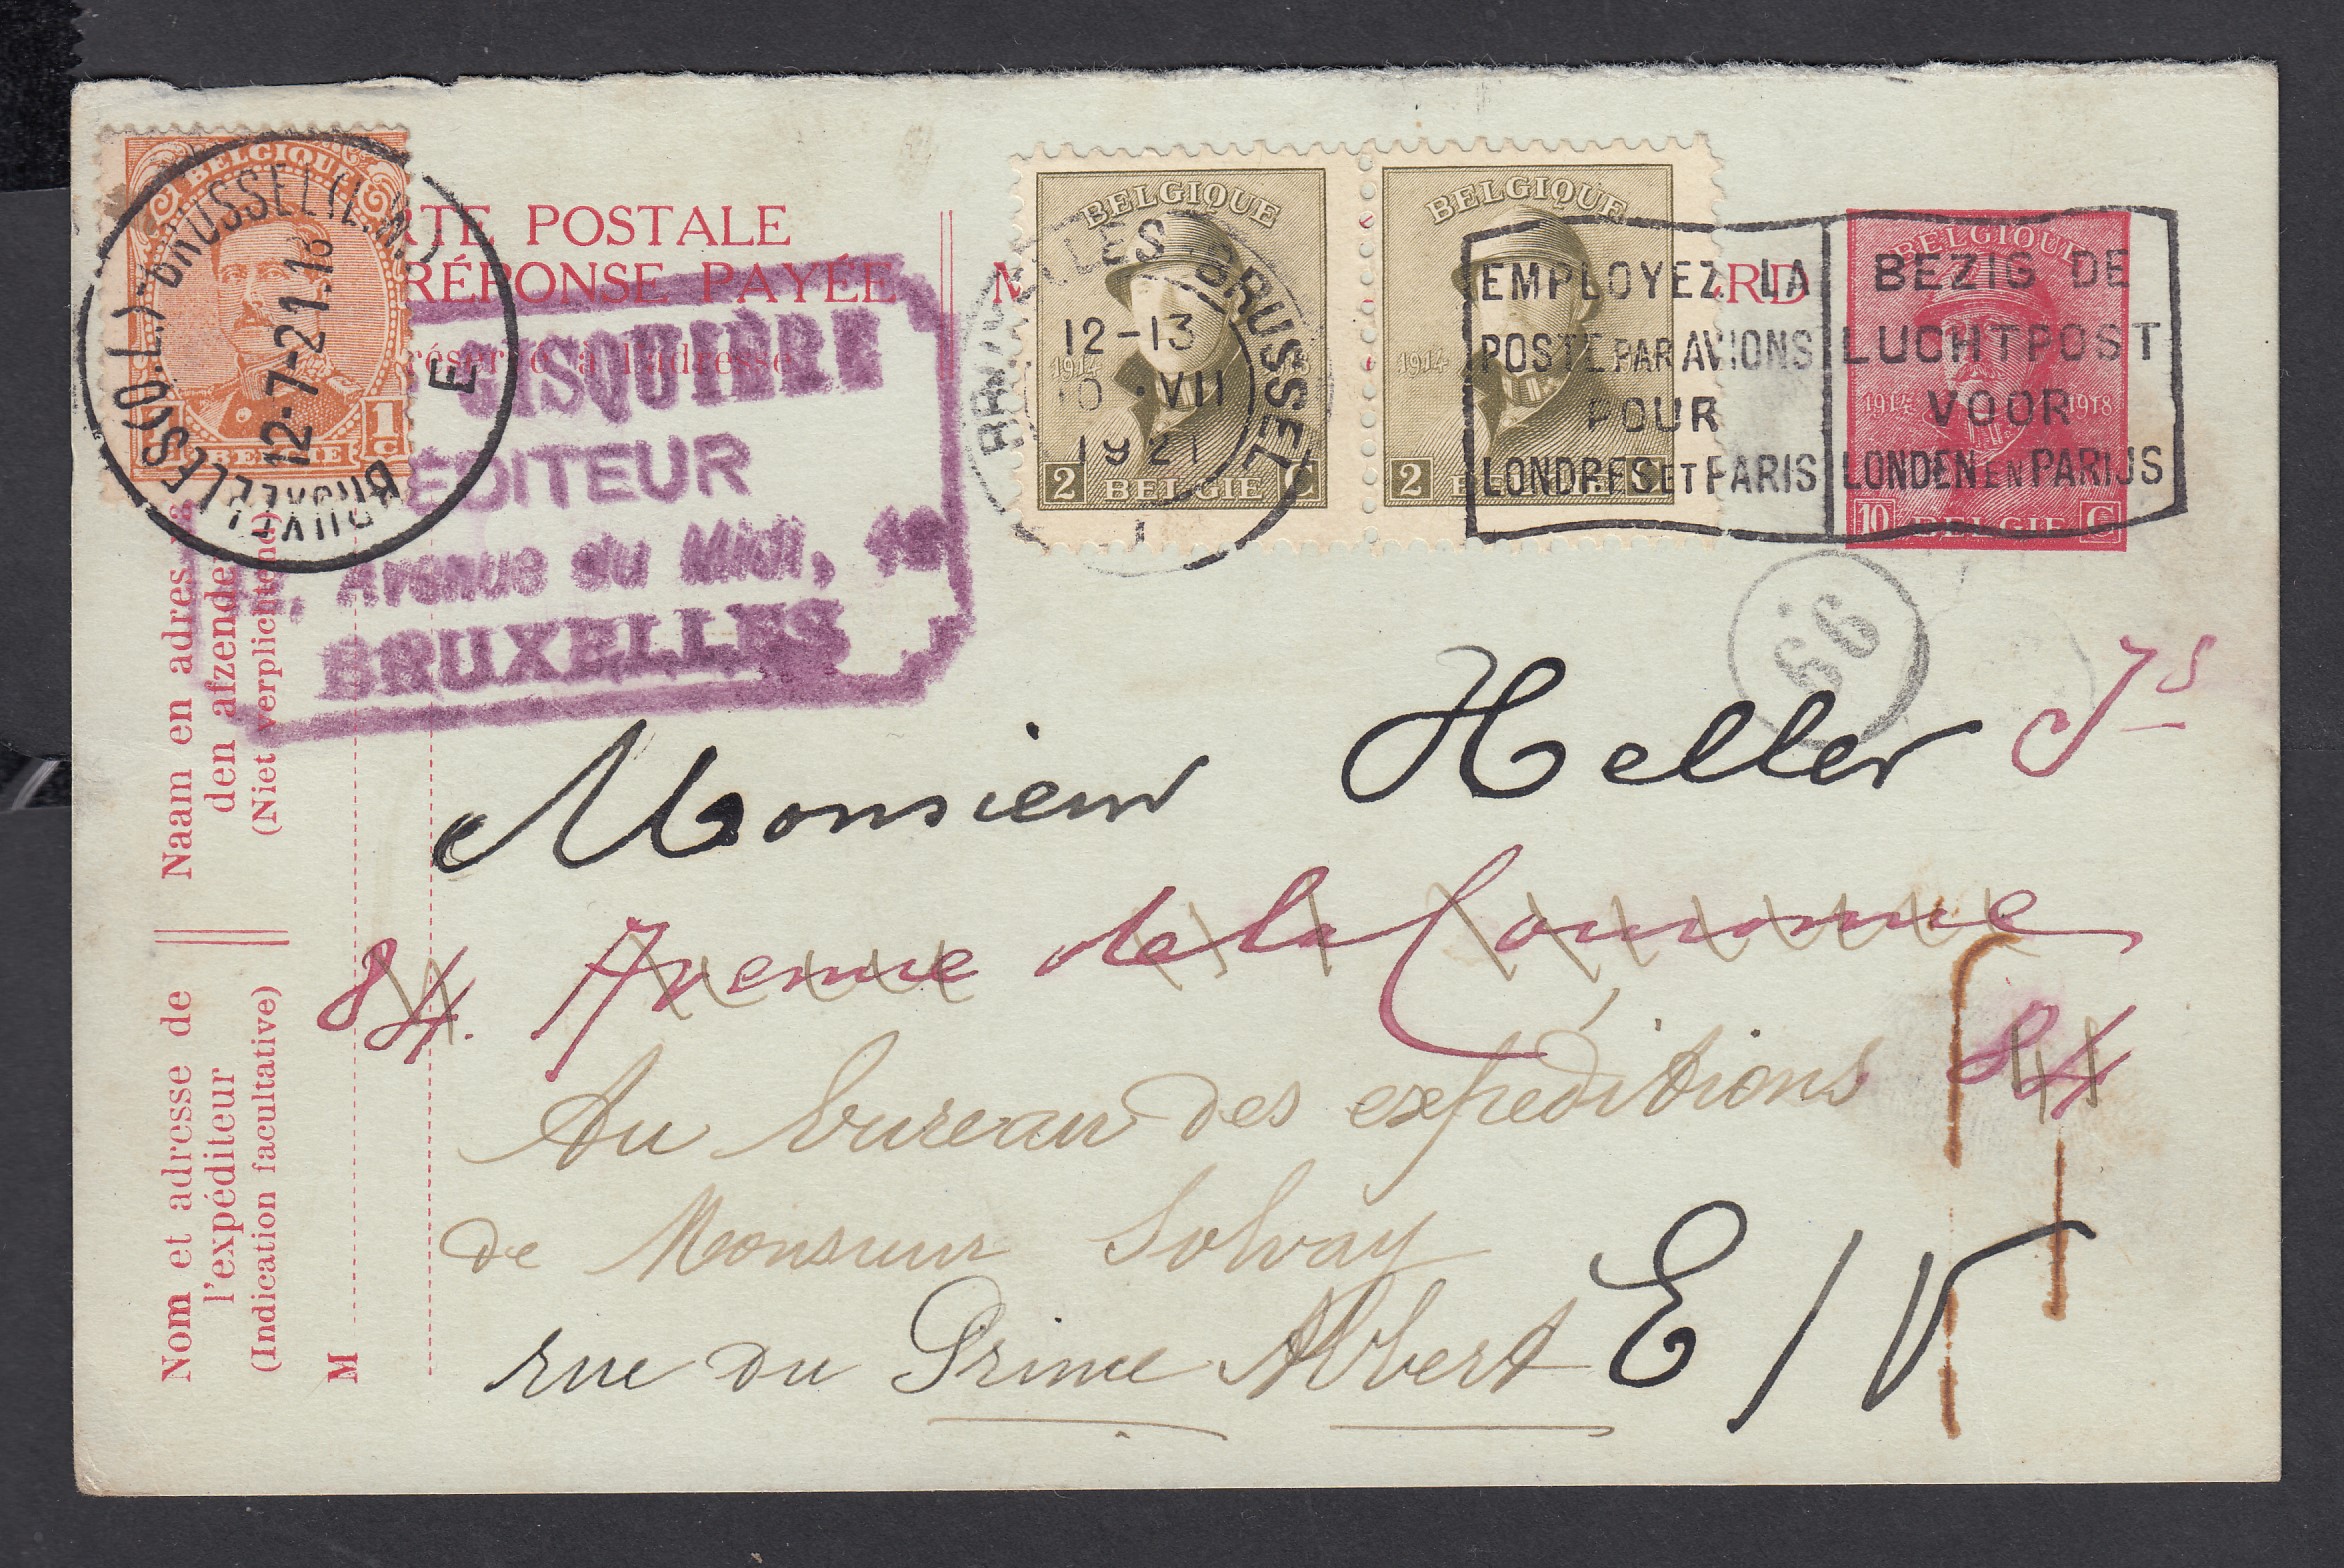 BELGIQUE
1 c
BELGIE
BRUXELLES (Q.L.) BRUSSEL (L.W.)
12-7-21.13
E
RTE POSTALE
RÉPONSE PAYÉE
réservé à l'adresse
GISQUIÈRE
ÉDITEUR
Avenue du Midi,
BRUXELLES
BELGIQUE
1914
2 BELGIE C
BELGIQUE
1914
2 BELGIE C
BRUXELLES BRUSSEL
12-13
VII
1921
1
RD
BELGIQUE
1914 1918
10 BELGIE C
EMPLOYEZ LA
POSTE PAR AVIONS
POUR
LONDRES ET PARIS
BEZIG DE
LUCHTPOST
VOOR
LONDEN EN PARIJS
Monsieur Heller Js
84. Avenue de la Couronne
84
Au bureau des expéditions
de Monsieur Solvay
rue du Prince Albert E/V
Naam en adres
den afzender
(Niet verplichtend)
Nom et adresse de
l'expéditeur
(Indication facultative)
M